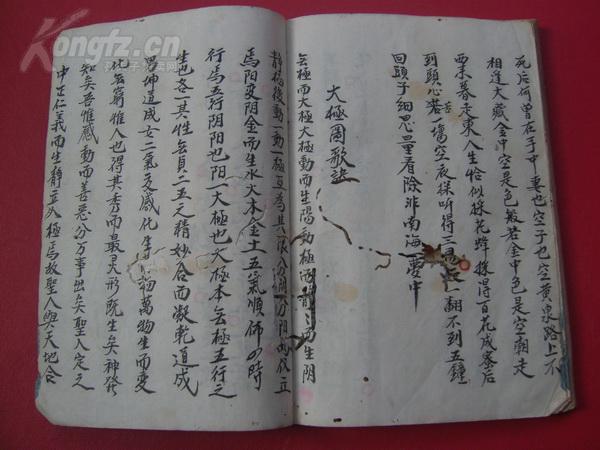 死后何曾在手中妻也空子也空黄泉路上不
相逢大藏金中空是色般若金中色是空朝走
西来暮走東人生恰似採花蜂採得百花成蜜后
到頭心苦一塲空夜深听得三更一翻不到五鐘
回頭子細思量看除非南海一夢中
太極圖歌訣
無極而太極太極動而生陽動極而靜而生阴
靜極後動一動一極互為其根分阴分阳两仪立
焉阳变阴合而生水火木金土五氣順佈四時
行焉五行阴阳也阴阳一太極也太極本無極五行之
生也各一其性無真二五之精妙合而凝乾道成
男坤道成女二氣交感化生萬物萬物生而變
化無窮惟人也得其秀而最灵形既生矣神發
知矣吾惟感動而善恶分万事出矣聖人定之
中正仁義而生靜立人極焉故聖人與天地合
Kongfz.cn